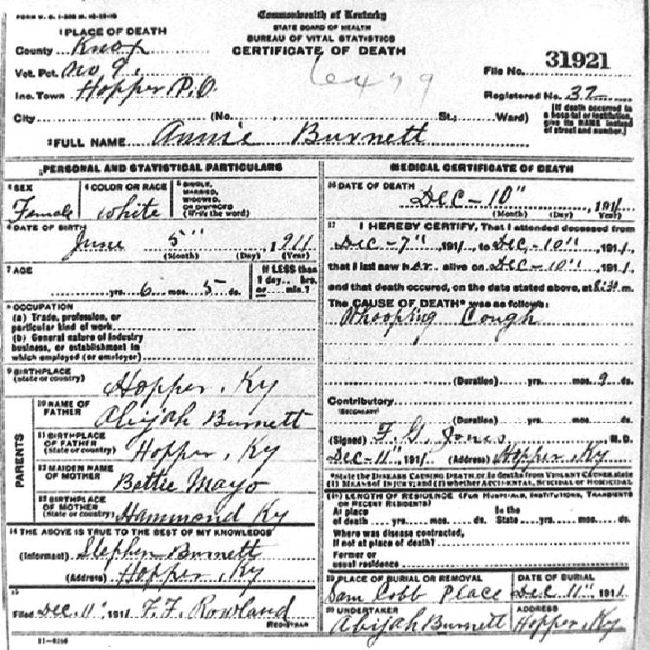 FORM V. S. 1-
Commonwealth of Kentucky
STATE BOARD OF HEALTH
BUREAU OF VITAL STATISTICS
CERTIFICATE OF DEATH
1 PLACE OF DEATH
County Knox
Vot. Pct. No 9.
Inc. Town Hopper P.O.
6479
File No. 31921
Registered No. 37
City (No. St.; Ward)
[If death occurred in a hospital or institution, give its NAME instead of street and number.]
2 FULL NAME Annie Burnett
PERSONAL AND STATISTICAL PARTICULARS
3 SEX
Female
4 COLOR OR RACE
white
5 SINGLE,
MARRIED,
WIDOWED,
OR DIVORCED
(Write the word)
6 DATE OF BIRTH
June 5", 1911
(Month) (Day) (Year)
7 AGE
yrs. 6 mos. 5 ds.
If LESS than
1 day... hrs.
or ... min.?
8 OCCUPATION
(a) Trade, profession, or
particular kind of work
(b) General nature of industry
business, or establishment in
which employed (or employer)
9 BIRTHPLACE
(State or country) Hopper, Ky
PARENTS
10 NAME OF
FATHER Abijah Burnett
11 BIRTHPLACE
OF FATHER
(State or country) Hopper, Ky
12 MAIDEN NAME
OF MOTHER Bettie Mayo
13 BIRTHPLACE
OF MOTHER
(State or country) Hammond Ky
14 THE ABOVE IS TRUE TO THE BEST OF MY KNOWLEDGE
(Informant) Stephen Burnett
(Address) Hopper, Ky
15
Filed Dec. 11", 1911 F. F. Rowland
REGISTRAR
MEDICAL CERTIFICATE OF DEATH
16 DATE OF DEATH
Dec - 10", 1911
(Month) (Day) (Year)
17 I HEREBY CERTIFY, That I attended deceased from
Dec - 7", 1911, to Dec - 10", 1911,
that I last saw her alive on Dec - 10", 1911,
and that death occured, on the date stated above, at m.
The CAUSE OF DEATH* was as follows:
Whoopling Cough
(Duration) yrs. mos. 9 ds.
Contributory
(SECONDARY)
(Duration) yrs. mos. ds.
(Signed) F. G. Jones M. D.
Dec - 11", 1911 (Address) Hopper, Ky
*State the DISEASE CAUSING DEATH, or, in deaths from VIOLENT CAUSES, state
(1) MEANS OF INJURY; and (2) whether ACCIDENTAL, SUICIDAL or HOMICIDAL
18 LENGTH OF RESIDENCE (FOR HOSPITALS, INSTITUTIONS, TRANSIENTS
OR RECENT RESIDENTS)
At place In the
of death yrs. mos. ds. State yrs. mos. ds.
Where was disease contracted,
if not at place of death?
Former or
usual residence
19 PLACE OF BURIAL OR REMOVAL
Sam Cobb Place
DATE OF BURIAL
Dec 11", 1911
20 UNDERTAKER
Abijah Burnett
ADDRESS
Hopper, Ky